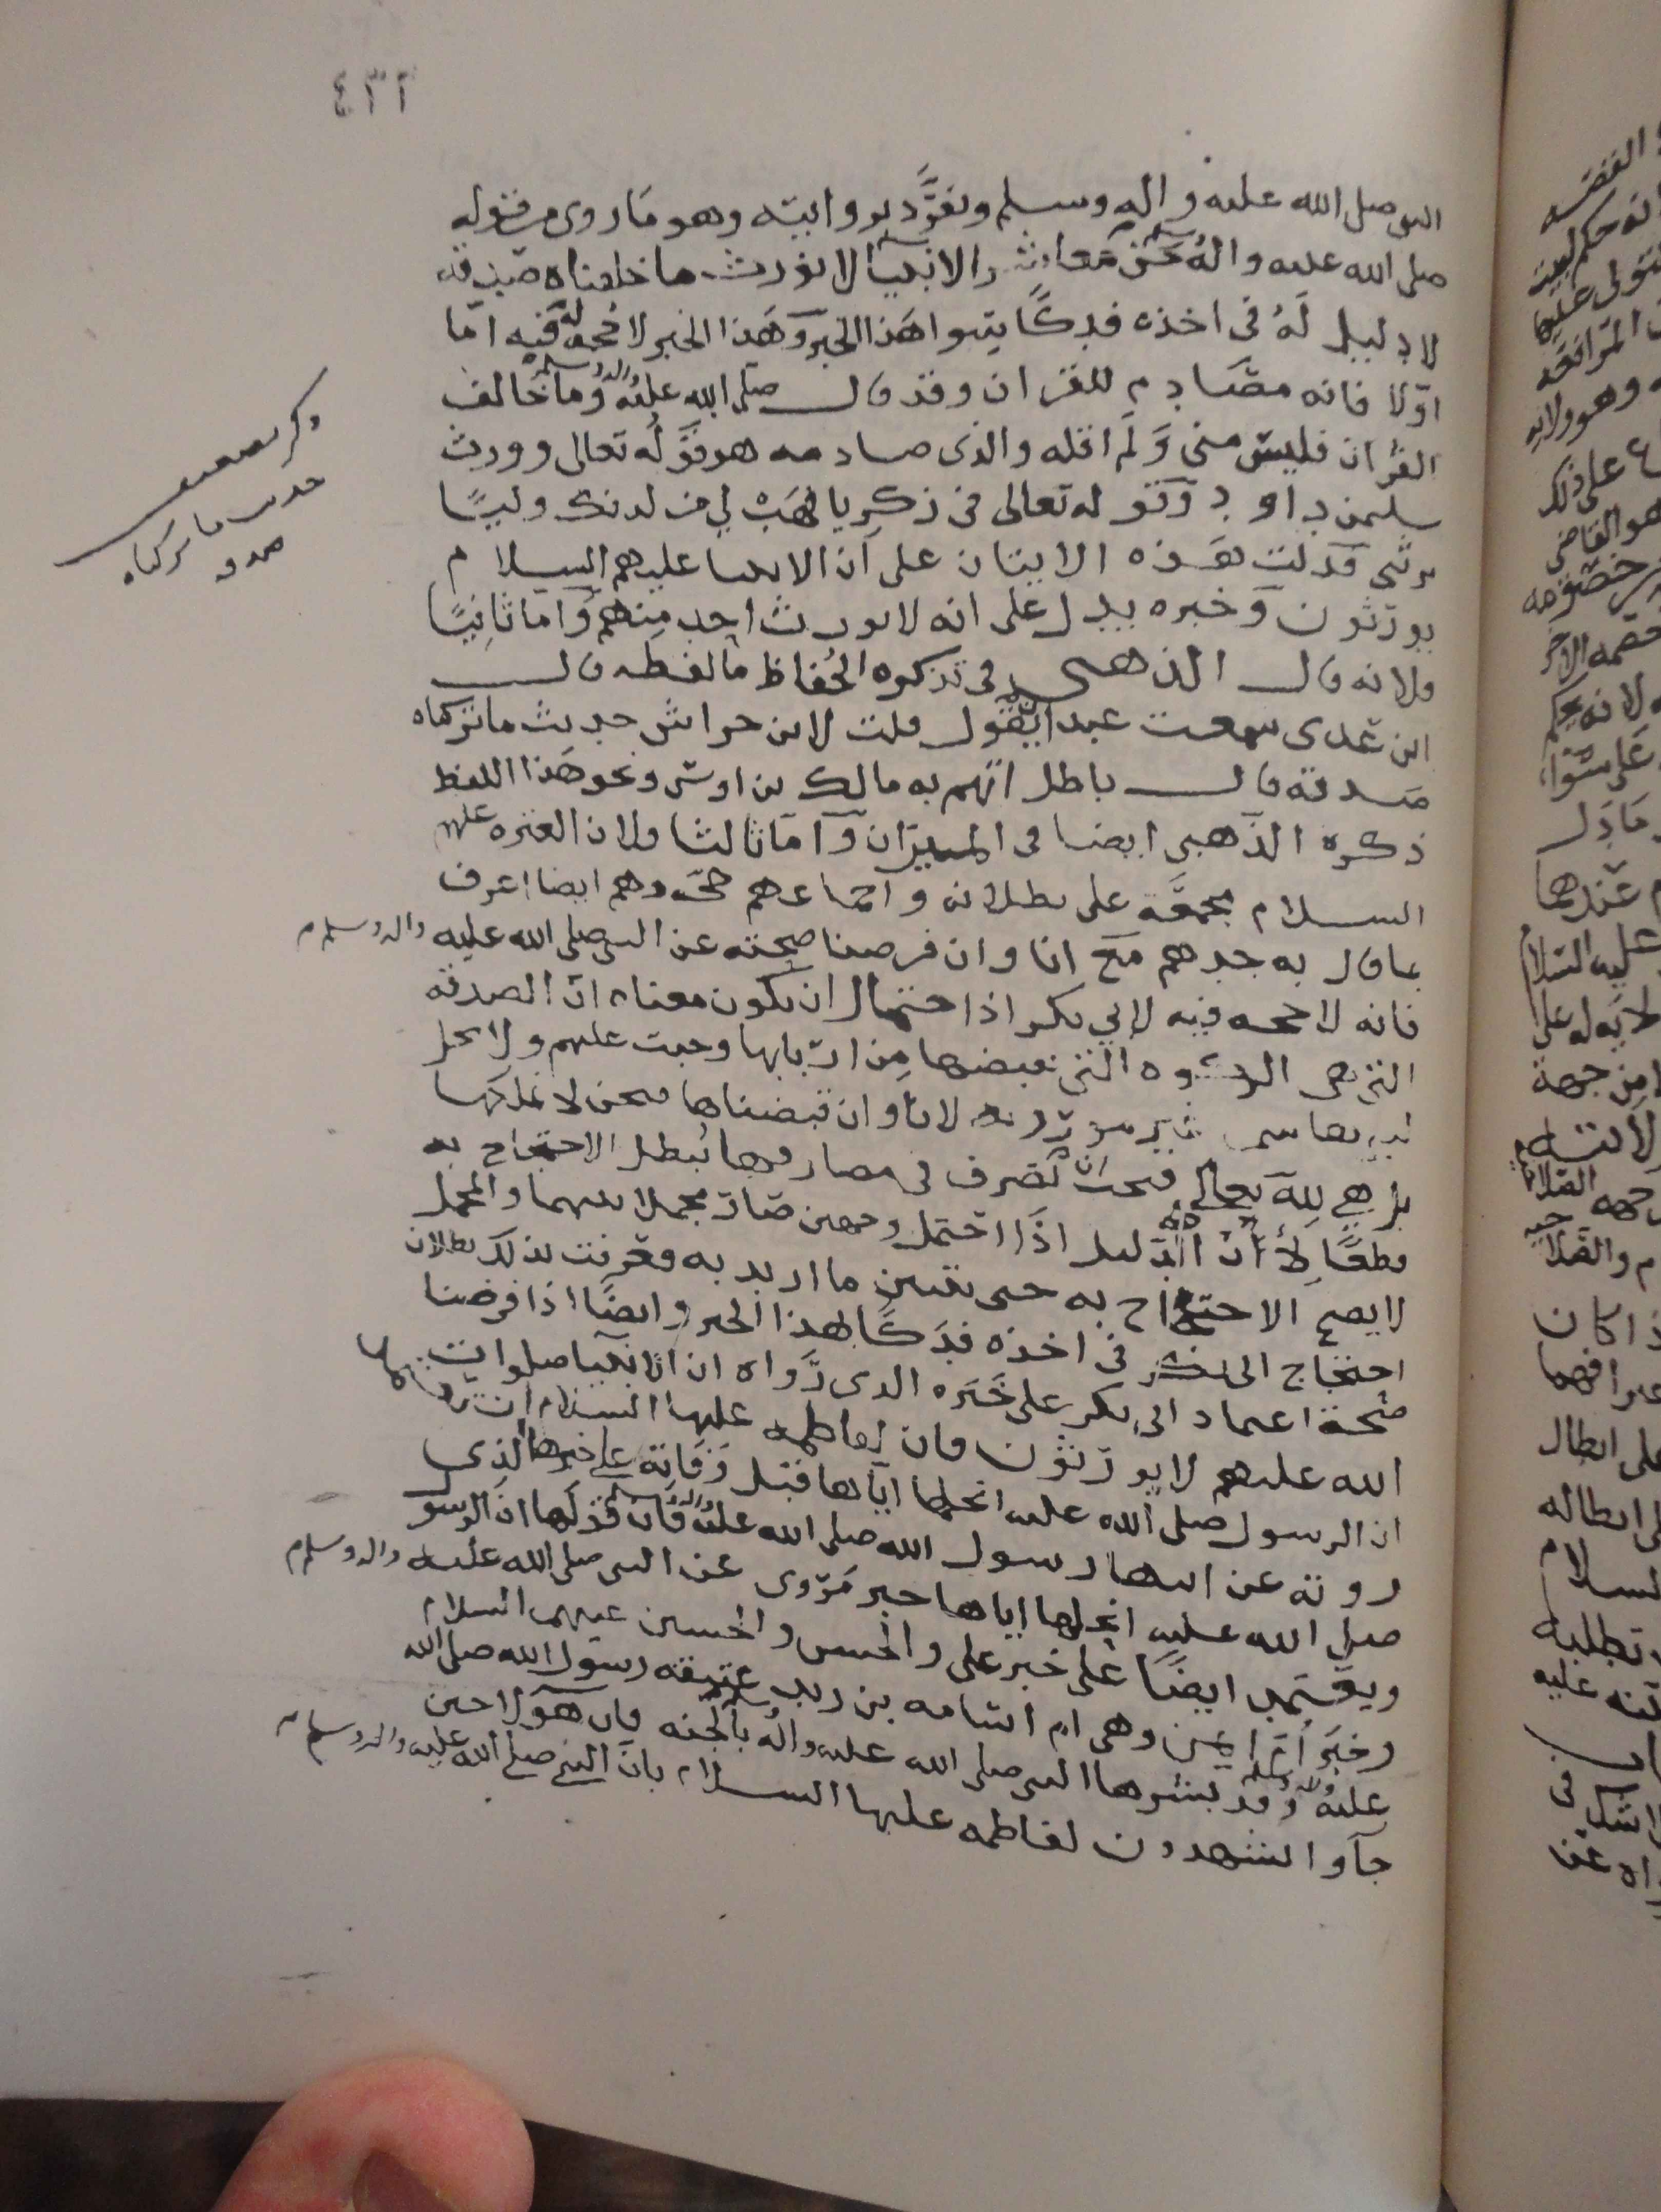 ٤٣٢
النبي صلى الله عليه واله وسلم وتفرَّد بروايته وهو ما روى من قوله
صلى الله عليه واله وسلم نحن معاشر الانبيا لا نورث ما خلفناه صدقه
لا دليل لَهُ في اخذه فدكًا سوا هَذا الخبر وهَذا الخبر لا حجة له فيه امّا
اوّلا فانه مصَادم للقران وقد قال صلى الله عليه واله وسلم وما خالف
القرٰان فليس منى وَلَم اقله والذى صادمه هو قوَلُه تعالى وورث
سليمن داود وَقوله تعالى في زكريا فهَبْ لي من لدنك وليًّا
يرثنى فدلت هَذه الايتان على اَن الانبيا عليهم السلام
يورَثون وَخبره يدل على انه لا يورث احد منهم وَامّا ثانيًا
فلانه قال الذهبى في تذكره الحُفاظ ما لفظه قال
ابن عَدى سمعت عبدان يقول قلت لابن خراش حديث ما تركناه
صَدقه قال باطل اتهم به مالك بن اوس ونحو هَذا اللفظ
ذكره الذهبى ايضا في الميزان وَامّا ثالثا فلان العتره عليهم
السلام مجمعَة على بطلانه واجماعهم حجَّه وهم ايضا اعرف
بما قال به جدهم مَع انا وان فرضنا صحته عن النبي صلى الله عليه واله وسلم
فانه لا حجه فيه لابي بكر اذا احتمال ان يكون معناه انّ الصدقه
التى هى الزكوه التى نقبضها مِن اربابها وجبت عليهم ولا تحل
لانا وان قبضناها فنحن لا نملكها
بل هي لله تعالى فنحن نتصرف في مصارفها فبطل الاحتجاج به
قطعًا لأن الدليل اذَا احتمل وجهين صَارَ مجملا بينهما والمجمل
لا يصح الاحتجاج به حتى يتبين ما اريد به فعرفت بذلك بطلان
احتجاج ابى بكر في اخذه فدَكًا بهذا الخبر وايضًا اذا فرضنا
صحة اعتماد ابى بكر على خَبَره الذى رَواه ان الانبيا صلوات
الله عليهم لا يورَثون فان لفاطمه عليها السلام ان
ان الرسول صلى الله عليه انحلها اياها قبل وَفاته على خبرها الذى
روته عن ابيها رسول الله صلى الله عليه واله وسلم فان قولها انّ الرسول
صلى الله عليه انحلها اياها خبر مَروى عن النبي صلى الله عليه واله وسلم
ويعتمد ايضًا على خبر على والحسن والحسين عليهم السلام
وخبَر اُمّ ايمن وهى ام اسامه بن زيد عتيقة رسول الله صلى الله
عليه واله وسلم وقد بشرها النبي صلى الله عليه واله وسلم بالجنه فان هَولا حين
جآوا يشهدون لفاطمه عليها السلام بانّ النبي صلى الله عليه واله وسلم
ذكر تضعيف
حديث ما تركناه
صدقه